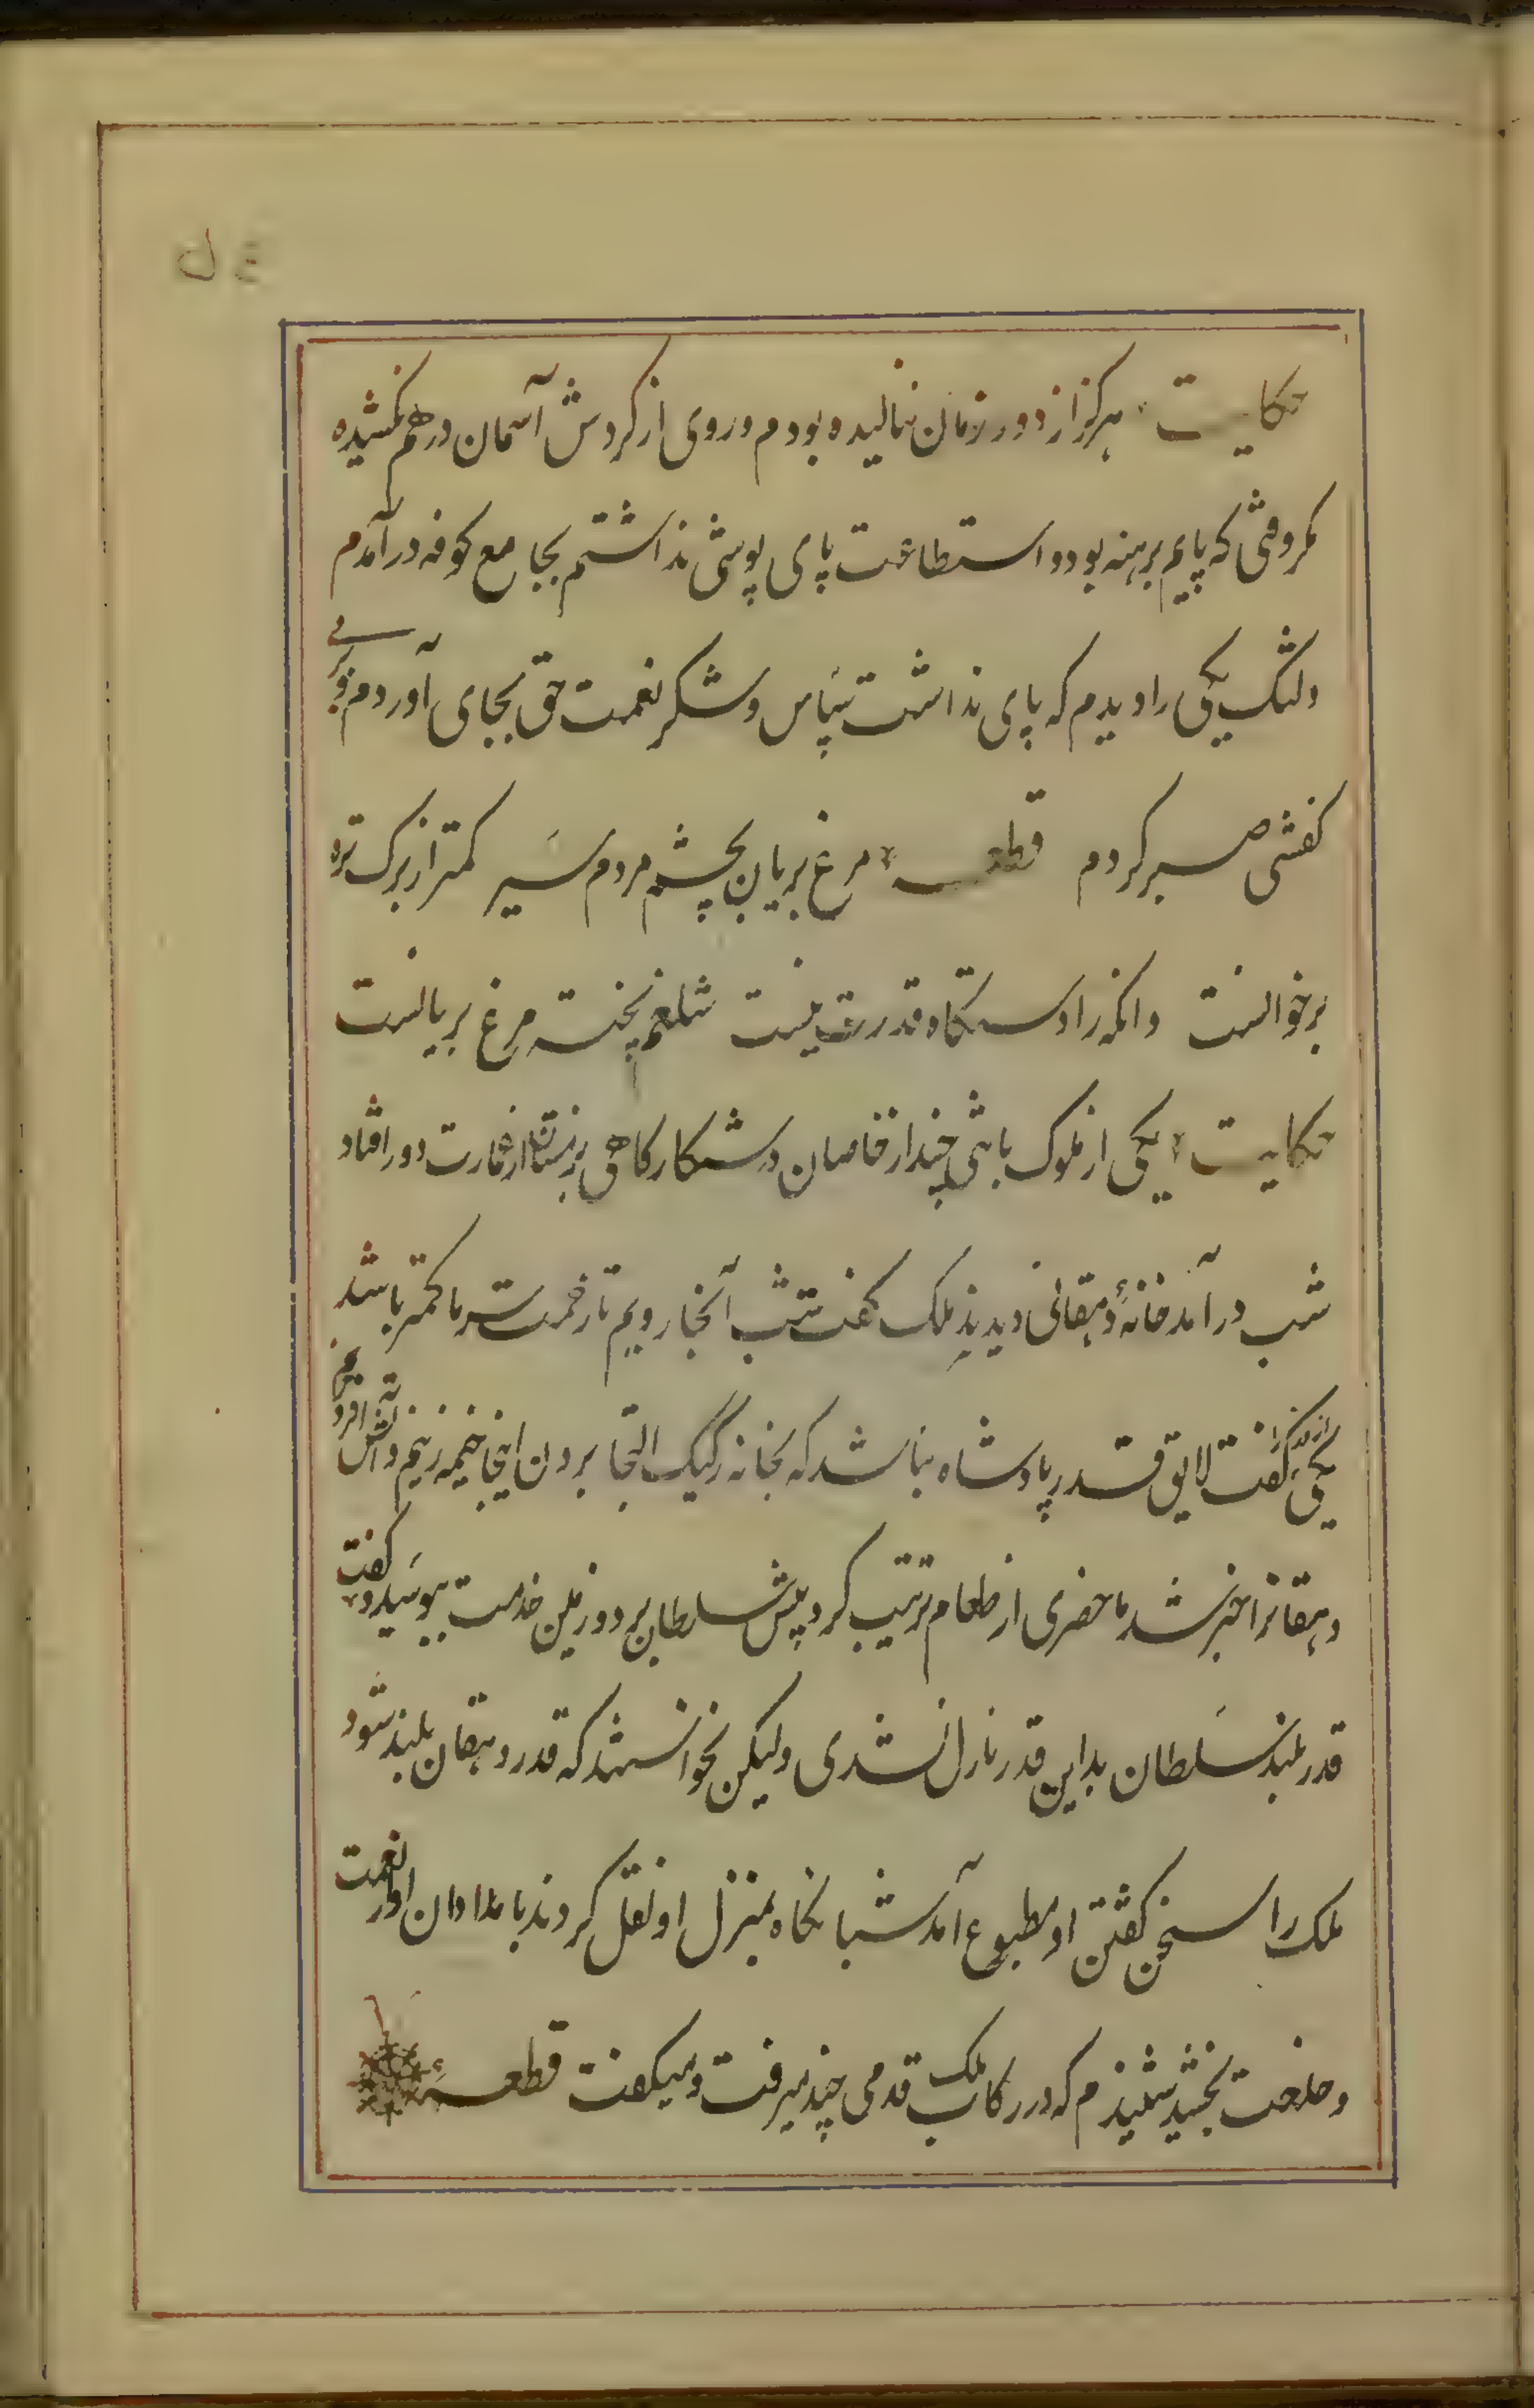 حکایت هرگز از دور زمان ننالیده بودم و روی از گردش آسمان درهم نکشیده
مگر وقتی که پایم برهنه بود و استطاعت پای پوشی نداشتم بجامع کوفه درآمدم
دلتنگ یکی را دیدم که پای نداشت سپاس و شکر نعمت حق بجای آوردم و بر بی
کفشی صبر کردم قطعه مرغ بریان بچشم مردم سیر کمتر از برک تره
برخوانست وانکه را دستگاه قدرت نیست شلغم پخته مرغ بریانست
حکایت یکی از ملوک با تنی چند از خاصان در شکارگاهی بزمستان از عمارت دور افتاد
شب درآمد خانهٔ دهقانی دیدند ملک گفت شب آنجا رویم تا زحمت سرما کمتر باشد
یکی از وزرا گفت لایق قدر پادشاه نباشد که بخانه رکیک التجا بردن اینجا خیمه زنیم و آتش افروزیم
دهقانرا خبر شد ماحضری از طعام ترتیب کرد پیش سلطان برد و زمین خدمت ببوسید و گفت
قدر بلند سلطان بداین قدر نازل نشدی ولیکن نخواستند که قدر دهقان بلند شود
ملک را سخن گفتن او مطبوع آمد شبانگاه بمنزل او نقل کردند بامدادان او را نعمت
و خلعت بخشید شنیدم که در رکاب ملک قدمی چند میرفت و میگفت قطعه